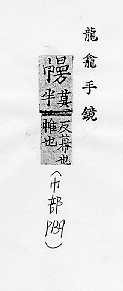 龍龕手鏡
幔莫半
反幕也
帷也
(巾部P139)